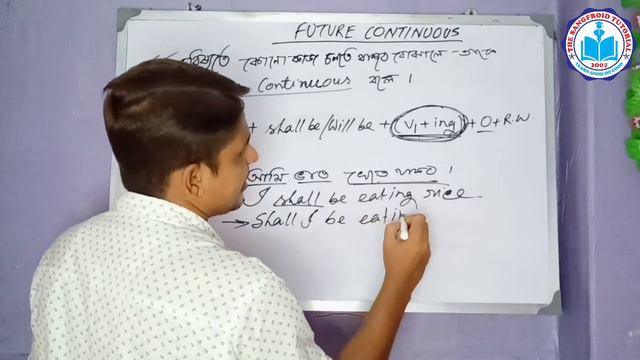 FUTURE CONTINUOUS
কোনো কাজ চলতে থাকবে বোঝালে তাকে
Continuous বলে ।
+ shall be/will be + (V1 + ing) + O + R.W.
আমি ভাত খেতে থাকব ।
I shall be eating rice.
→ Shall I be eatin
THE SANGFROID TUTORIAL
2007
LEARN GOOD DO GOOD